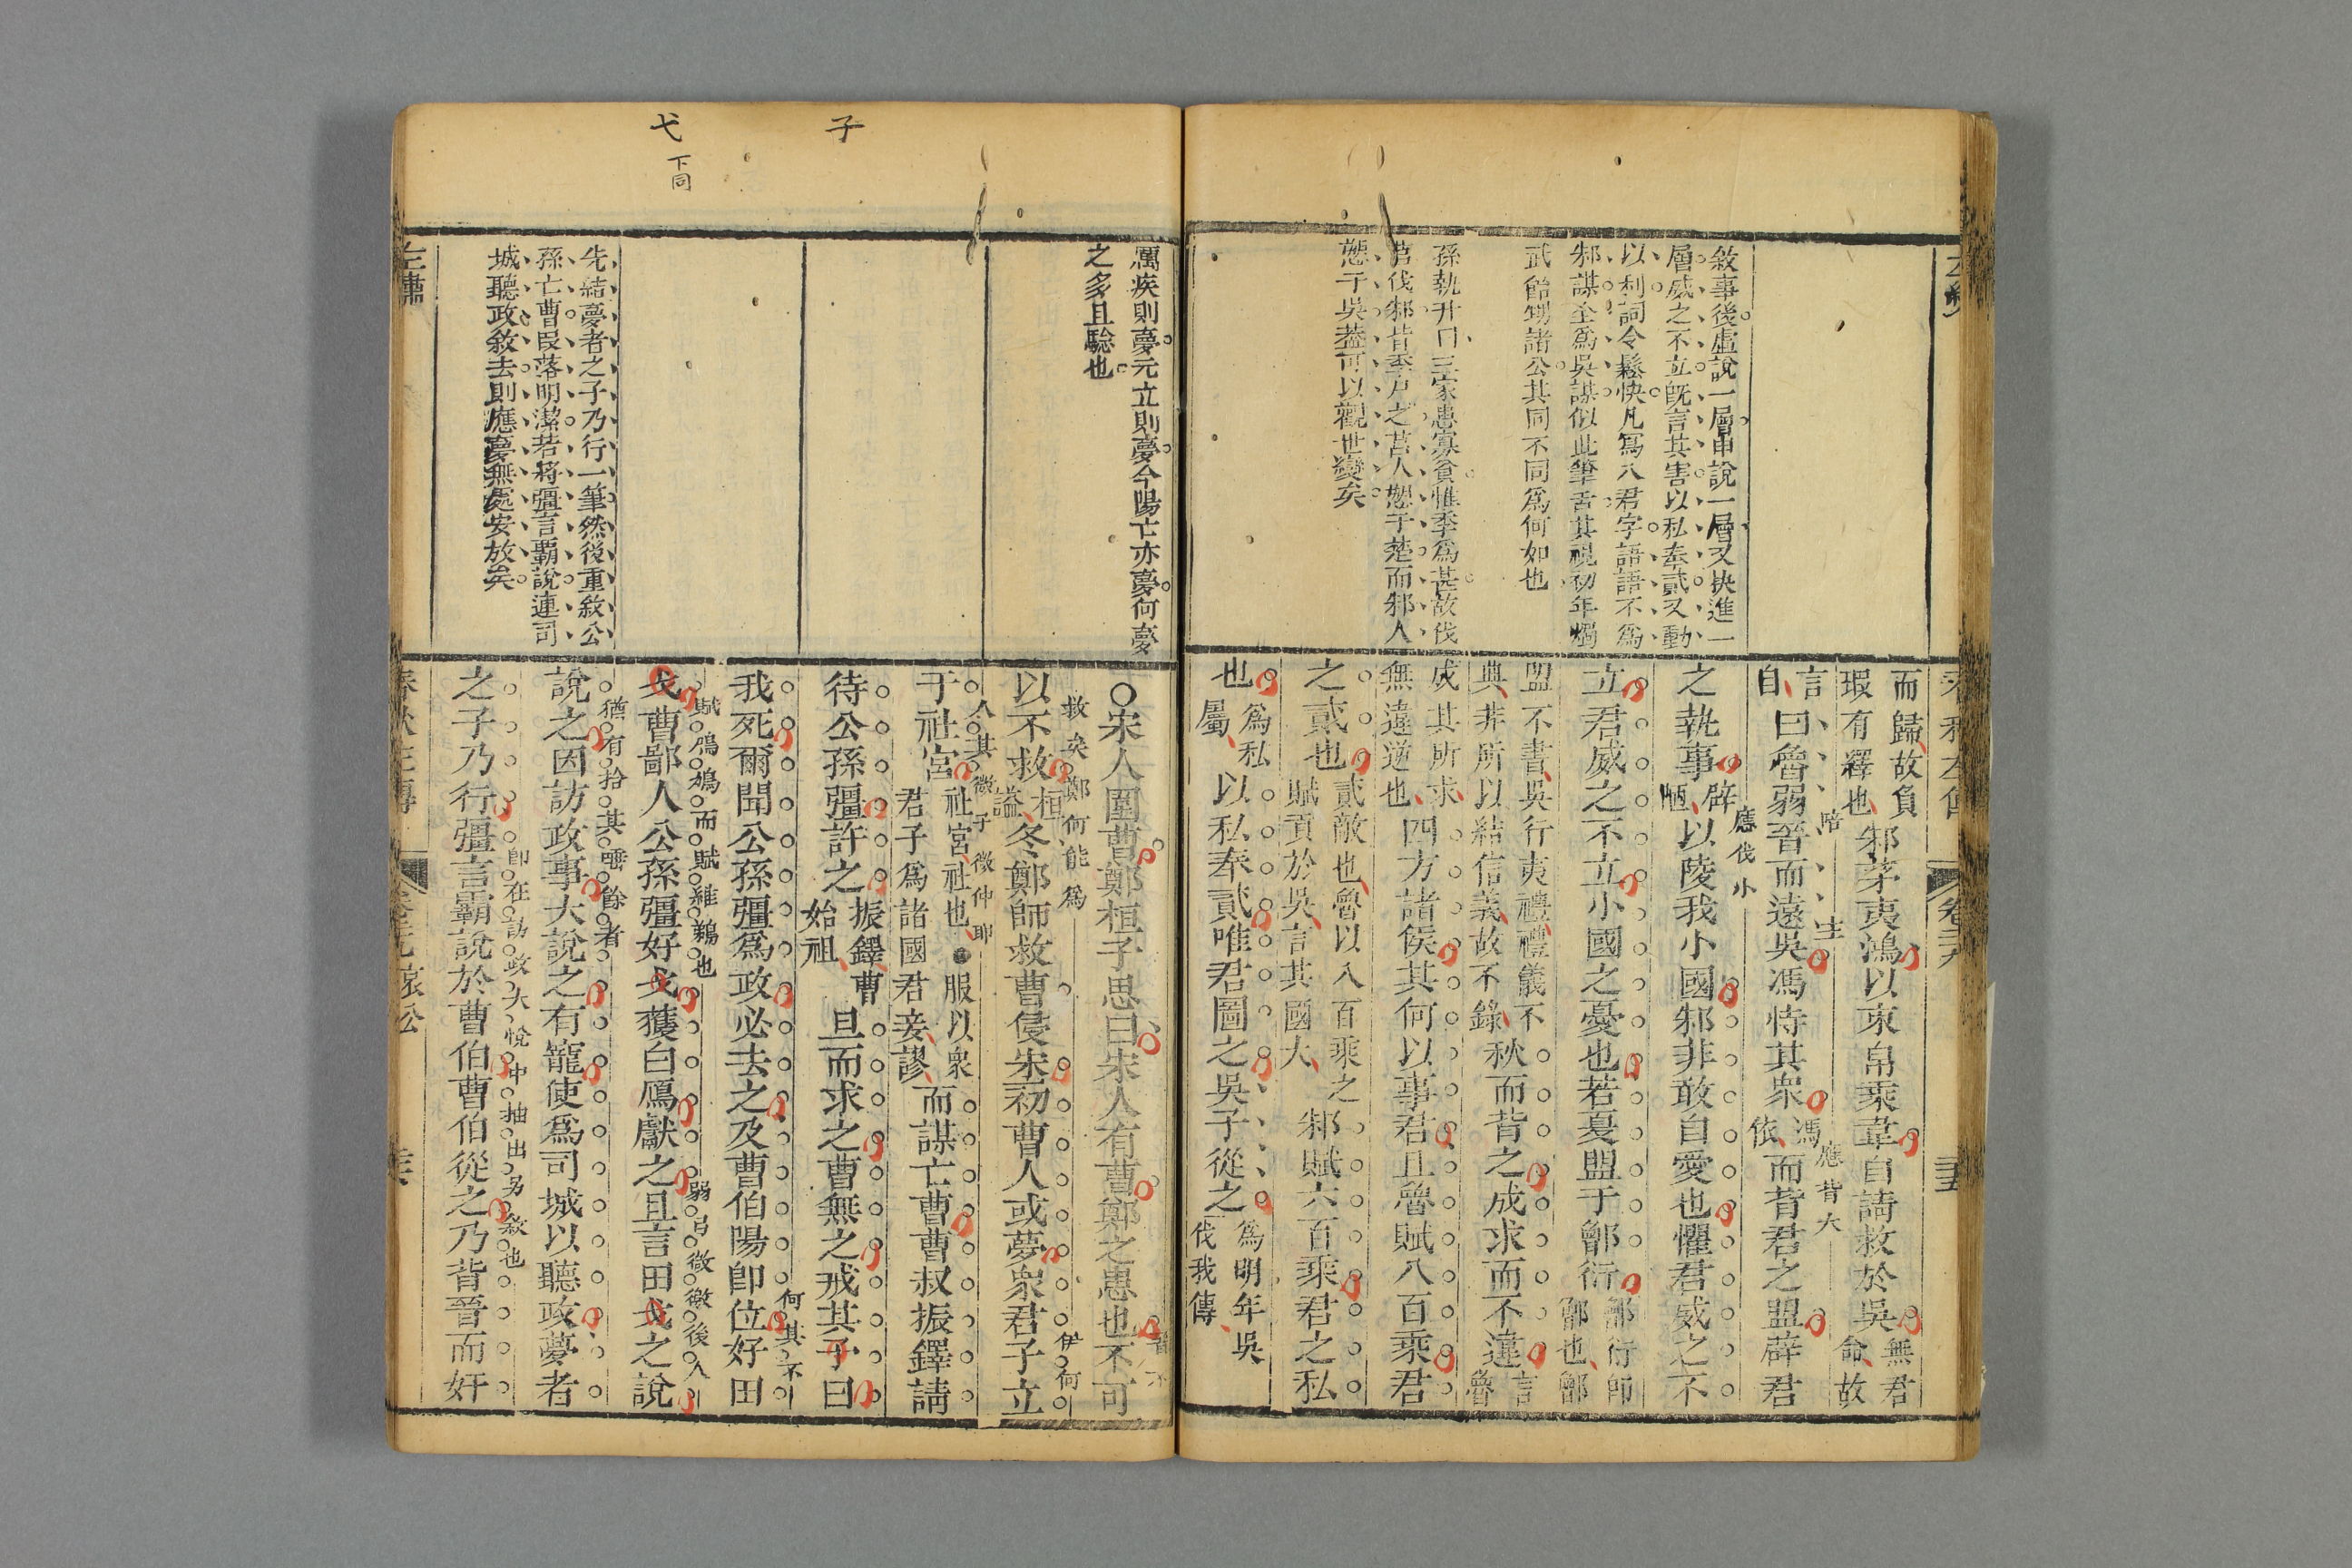 敘事後虛說一層申說一層又抉進一
層威之不立既言其害以私奉貳又動
以利詞令鬆快凡寫八君字語語不爲
邾謀全爲吳謀似此筆舌其視初年燭
武飴甥諸公其同不同爲何如也
孫執升曰三家患寡貧惟季爲甚故伐
莒伐邾皆季尸之莒人愬于楚而邾人
愬于吳葢可以觀世變矣
而歸故負
瑕有繹也
邾茅夷鴻以束帛乘韋自請救於吳
無君
命故
言
自
曰魯弱晉而遠吳馮恃其衆
馮
依
而背君之盟辟君
應背大
之執事
辟
陋
以陵我小國邾非敢自愛也懼君威之不
應伐小
立君威之不立小國之憂也若夏盟于鄫衍
鄫衍即
鄫也鄫
盟不書吳行夷禮禮儀不
典非所以結信義故不錄
秋而背之成求而不違
言
魯
成其所求
無違逆也
四方諸侯其何以事君且魯賦八百乘君
之貳也
貳敵也魯以八百乘之
賦貢於吳言其國大
邾賦六百乘君之私
也
爲私
屬
以私奉貳唯君圖之吳子從之
爲明年吳
伐我傳
子
弋
下同
厲疾則夢元立則夢今陽亡亦夢何夢
之多且驗也
先結夢者之子乃行一筆然後重敘公
孫亡曹段落明潔若將彊言霸說連司
城聽政敘去則應夢無處安放矣
左繡
○宋人圍曹鄭桓子思曰宋人有曹鄭之患也不可
救矣鄭何能爲
以不救
桓
謚
冬鄭師救曹侵宋初曹人或夢衆君子立
伊何
人其徵子徵仲耶
于社宮
社宮社也●服以衆
君子爲諸國君妾謬
而謀亡曹曹叔振鐸請
待公孫彊許之
振鐸曹
始祖
旦而求之曹無之戒其子曰
我死爾聞公孫彊爲政必去之及曹伯陽即位好田
何其不
賦鳲鳩而賦維鵜也
弋曹鄙人公孫彊好弋獲白鴈獻之且言田弋之說
弱弓微徵後人
猶有拾其唾餘者
說之因訪政事大說之有寵使爲司城以聽政夢者
之子乃行彊言霸說於曹伯曹伯從之乃背晉而奸
即在訪政大悅中抽出另敘也
春秋左傳
哀公